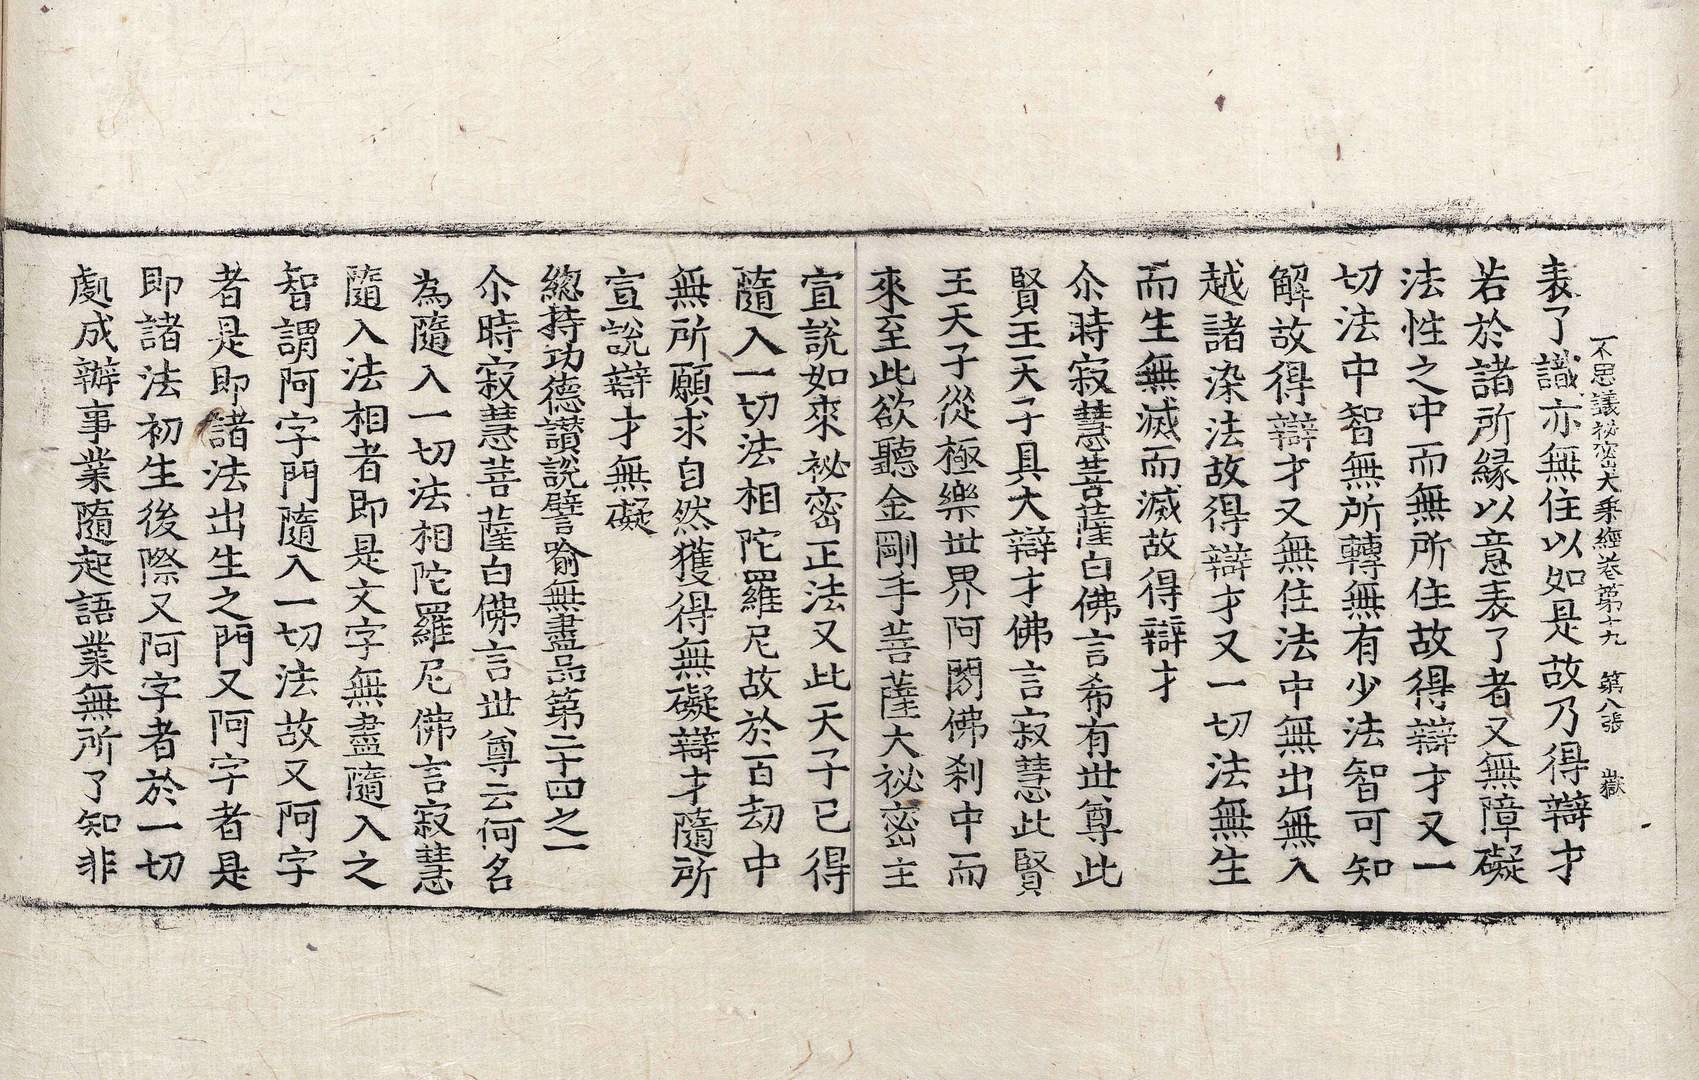 不思議祕密大乘經卷第十九　第八張　嶽
表了識亦無住以如是故乃得辯才
若於諸所緣以意表了者又無障礙
法性之中而無所住故得辯才又一
切法中智無所轉無有少法智可知
解故得辯才又無住法中無出無入
越諸染法故得辯才又一切法無生
而生無滅而滅故得辯才
尒時寂慧菩薩白佛言希有世尊此
賢王天子具大辯才佛言寂慧此賢
王天子從極樂世界阿閦佛剎中而
來至此欲聽金剛手菩薩大祕密主
宣說如來祕密正法又此天子已得
隨入一切法相陀羅尼故於百劫中
無所願求自然獲得無礙辯才隨所
宣說辯才無礙
總持功德讚說譬喻無盡品第二十四之一
尒時寂慧菩薩白佛言世尊云何名
為隨入一切法相陀羅尼佛言寂慧
隨入法相者即是文字無盡隨入之
智謂阿字門隨入一切法故又阿字
者是即諸法出生之門又阿字者是
即諸法初生後際又阿字者於一切
劇成辦事業隨起語業無所了知非